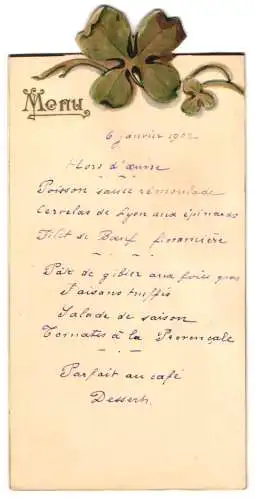 Menu
6 janvier 1902
Hors d'œuvre
Poisson sauce rémoulade
Cervelas de Lyon aux épinards
Filet de Bœuf financière
Pâté de gibier aux foies gras
Faisans truffés
Salade de saison
Tomates à la Provençale
Parfait au café
Dessert.